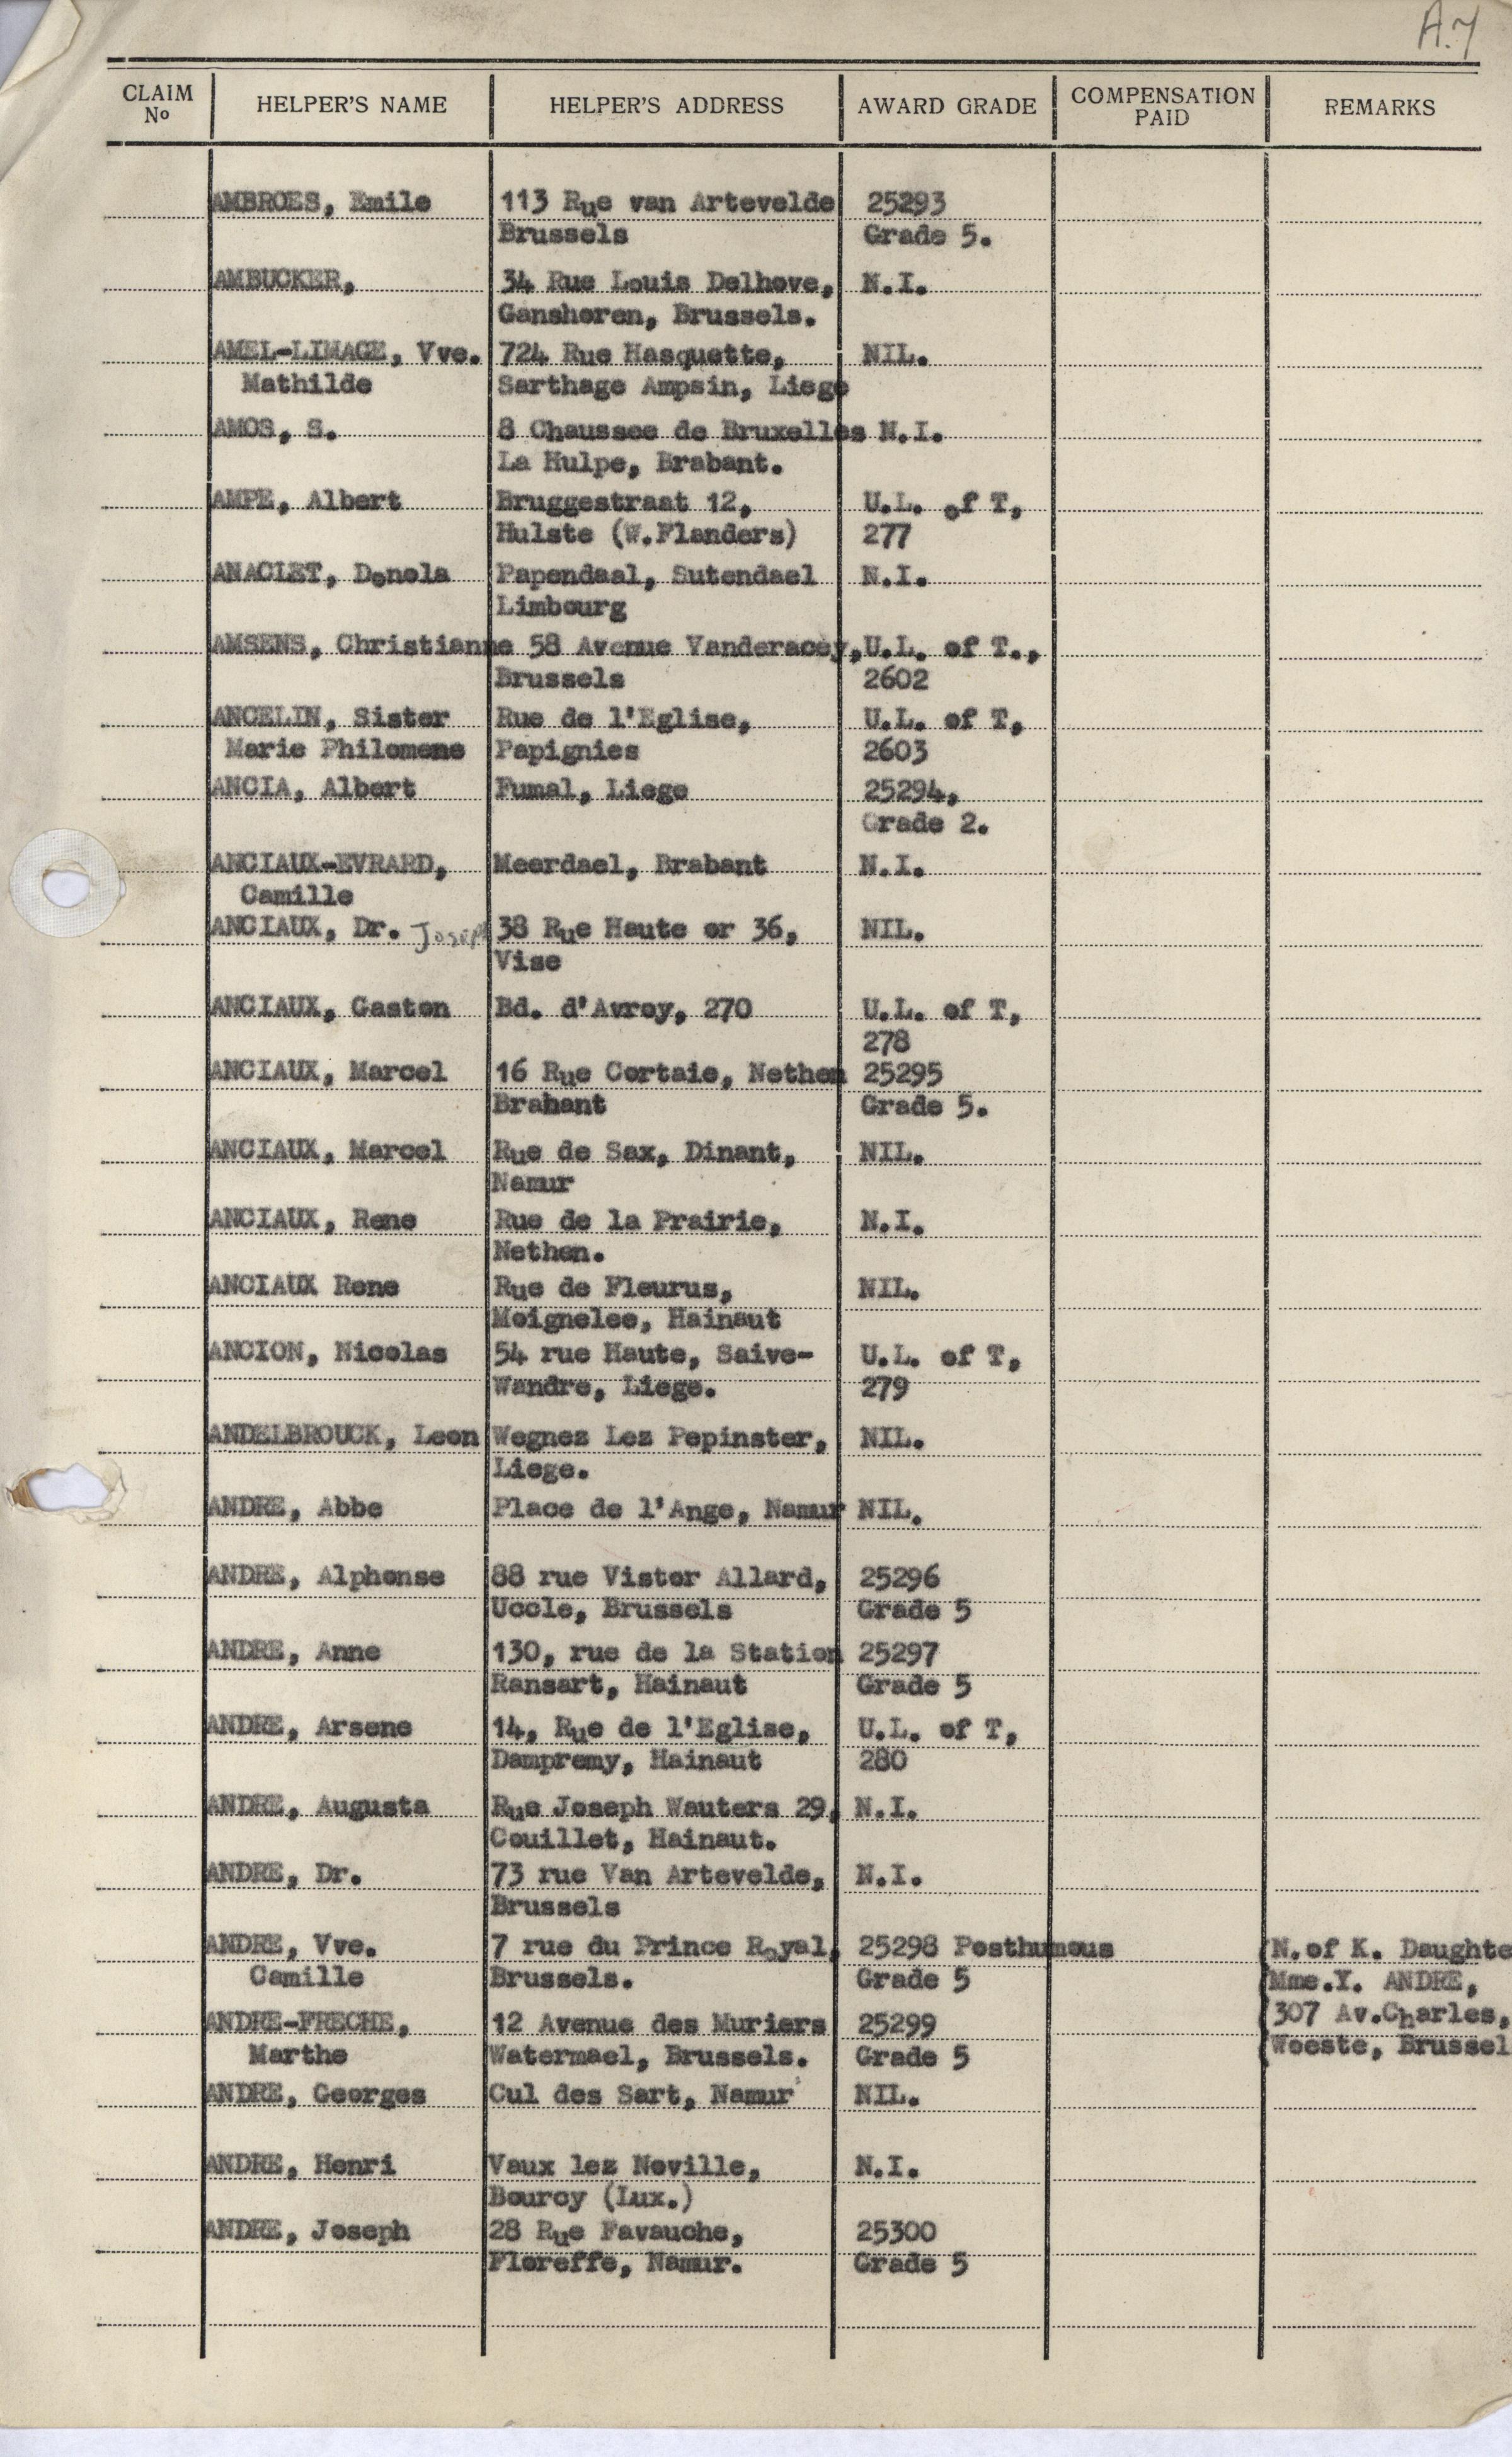 A.7
CLAIM No HELPER'S NAME HELPER'S ADDRESS AWARD GRADE COMPENSATION PAID REMARKS
AMBROES, Emile 113 Rue van Artevelde 25293
Brussels Grade 5.
AMBUCKER, 34 Rue Louis Delhove, N.I.
Ganshoren, Brussels.
AMEL-LIMAGE, Vve. 724 Rue Hasquette, NIL.
Mathilde Sarthage Ampsin, Liege
AMOS, S. 8 Chaussee de Bruxelles N.I.
La Hulpe, Brabant.
AMPE, Albert Bruggestraat 12, U.L. of T,
Hulste (W.Flanders) 277
ANACLET, Donola Papendaal, Sutendael N.I.
Limbourg
AMSENS, Christianne 58 Avenue Vanderaeey, U.L. of T.,
Brussels 2602
ANCELIN, Sister Rue de l'Eglise, U.L. of T,
Marie Philomene Papignies 2603
ANCIA, Albert Fumal, Liege 25294,
Grade 2.
ANCIAUX-EVRARD, Meerdael, Brabant N.I.
Camille
ANCIAUX, Dr. Joseph 38 Rue Haute or 36, NIL.
Vise
ANCIAUX, Gaston Bd. d'Avroy, 270 U.L. of T,
278
ANCIAUX, Marcel 16 Rue Cortaie, Nethen 25295
Brabant Grade 5.
ANCIAUX, Marcel Rue de Sax, Dinant, NIL.
Namur
ANCIAUX, Rene Rue de la Prairie, N.I.
Nethen.
ANCIAUX Rene Rue de Fleurus, NIL.
Moignelee, Hainaut
ANCION, Nicolas 54 rue Haute, Saive- U.L. of T,
Wandre, Liege. 279
ANDELBROUCK, Leon Wegnez Lez Pepinster, NIL.
Liege.
ANDRE, Abbe Place de l'Ange, Namur NIL.
ANDRE, Alphonse 88 rue Vistor Allard, 25296
Uccle, Brussels Grade 5
ANDRE, Anne 130, rue de la Station 25297
Ransart, Hainaut Grade 5
ANDRE, Arsene 14, Rue de l'Eglise, U.L. of T,
Dampremy, Hainaut 280
ANDRE, Augusta Rue Joseph Wauters 29, N.I.
Couillet, Hainaut.
ANDRE, Dr. 73 rue Van Artevelde, N.I.
Brussels
ANDRE, Vve. 7 rue du Prince Royal, 25298 Posthumous (N.of K. Daughte
Camille Brussels. Grade 5 (Mme.Y. ANDRE,
ANDRE-FRECHE, 12 Avenue des Muriers 25299 (307 Av.Charles,
Marthe Watermael, Brussels. Grade 5 (Woeste, Brussel
ANDRE, Georges Cul des Sart, Namur NIL.
ANDRE, Henri Vaux lez Noville, N.I.
Bourcy (Lux.)
ANDRE, Joseph 28 Rue Favauche, 25300
Floreffe, Namur. Grade 5